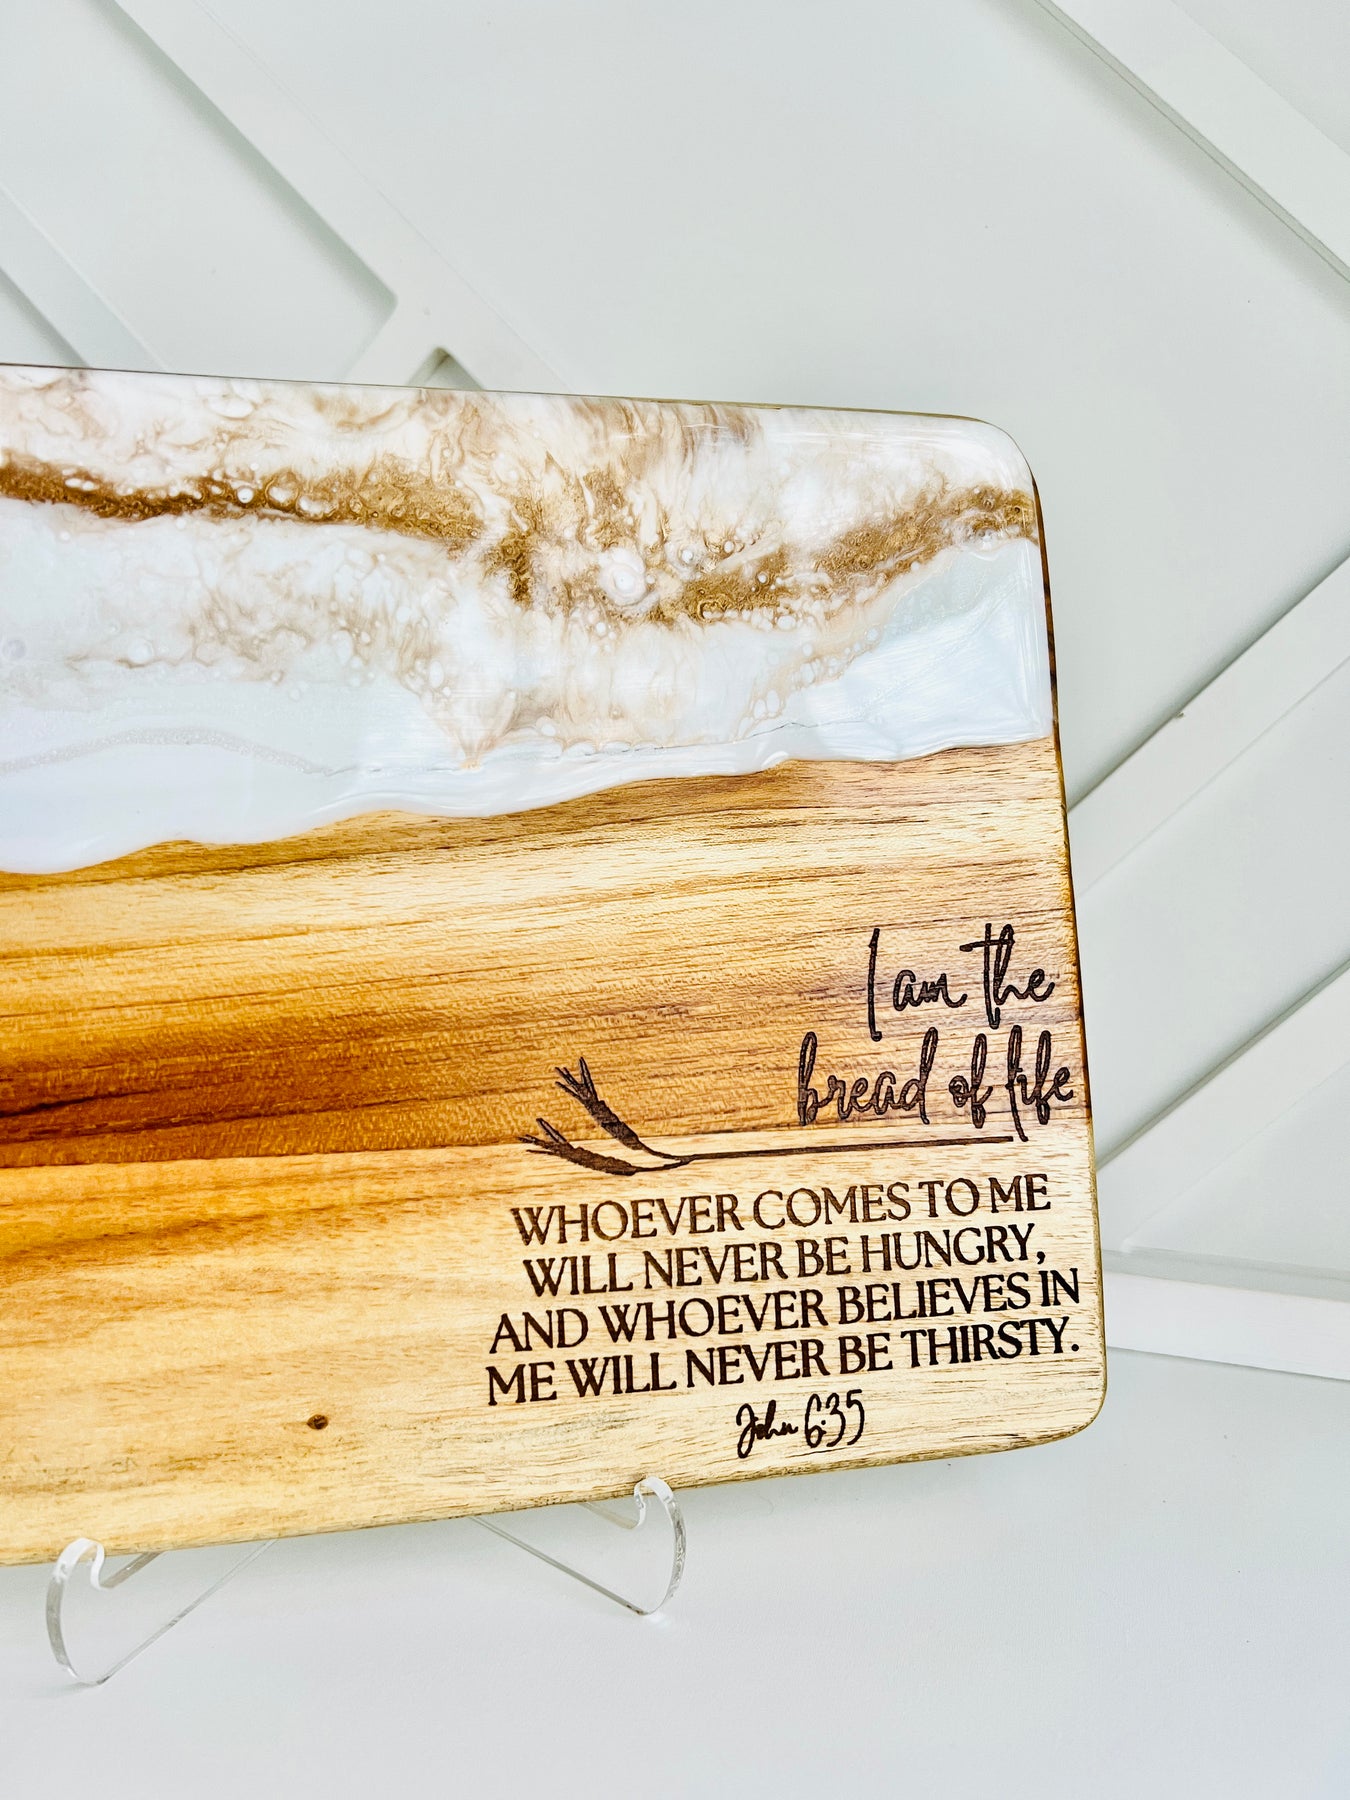 I am the
bread of life
WHOEVER COMES TO ME
WILL NEVER BE HUNGRY,
AND WHOEVER BELIEVES IN
ME WILL NEVER BE THIRSTY.
John 6:35